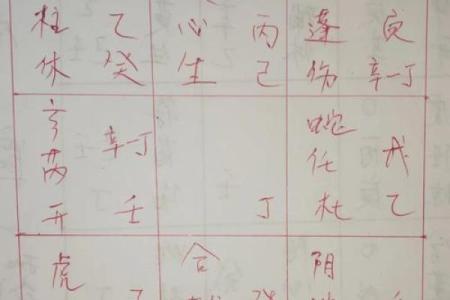 柱 乙 心 丙 蓬 庚
休 癸 生 己 伤 辛一丁
芮 辛一丁 蛇 戊
任
开 壬 丁 杜 乙
虎 合 阴